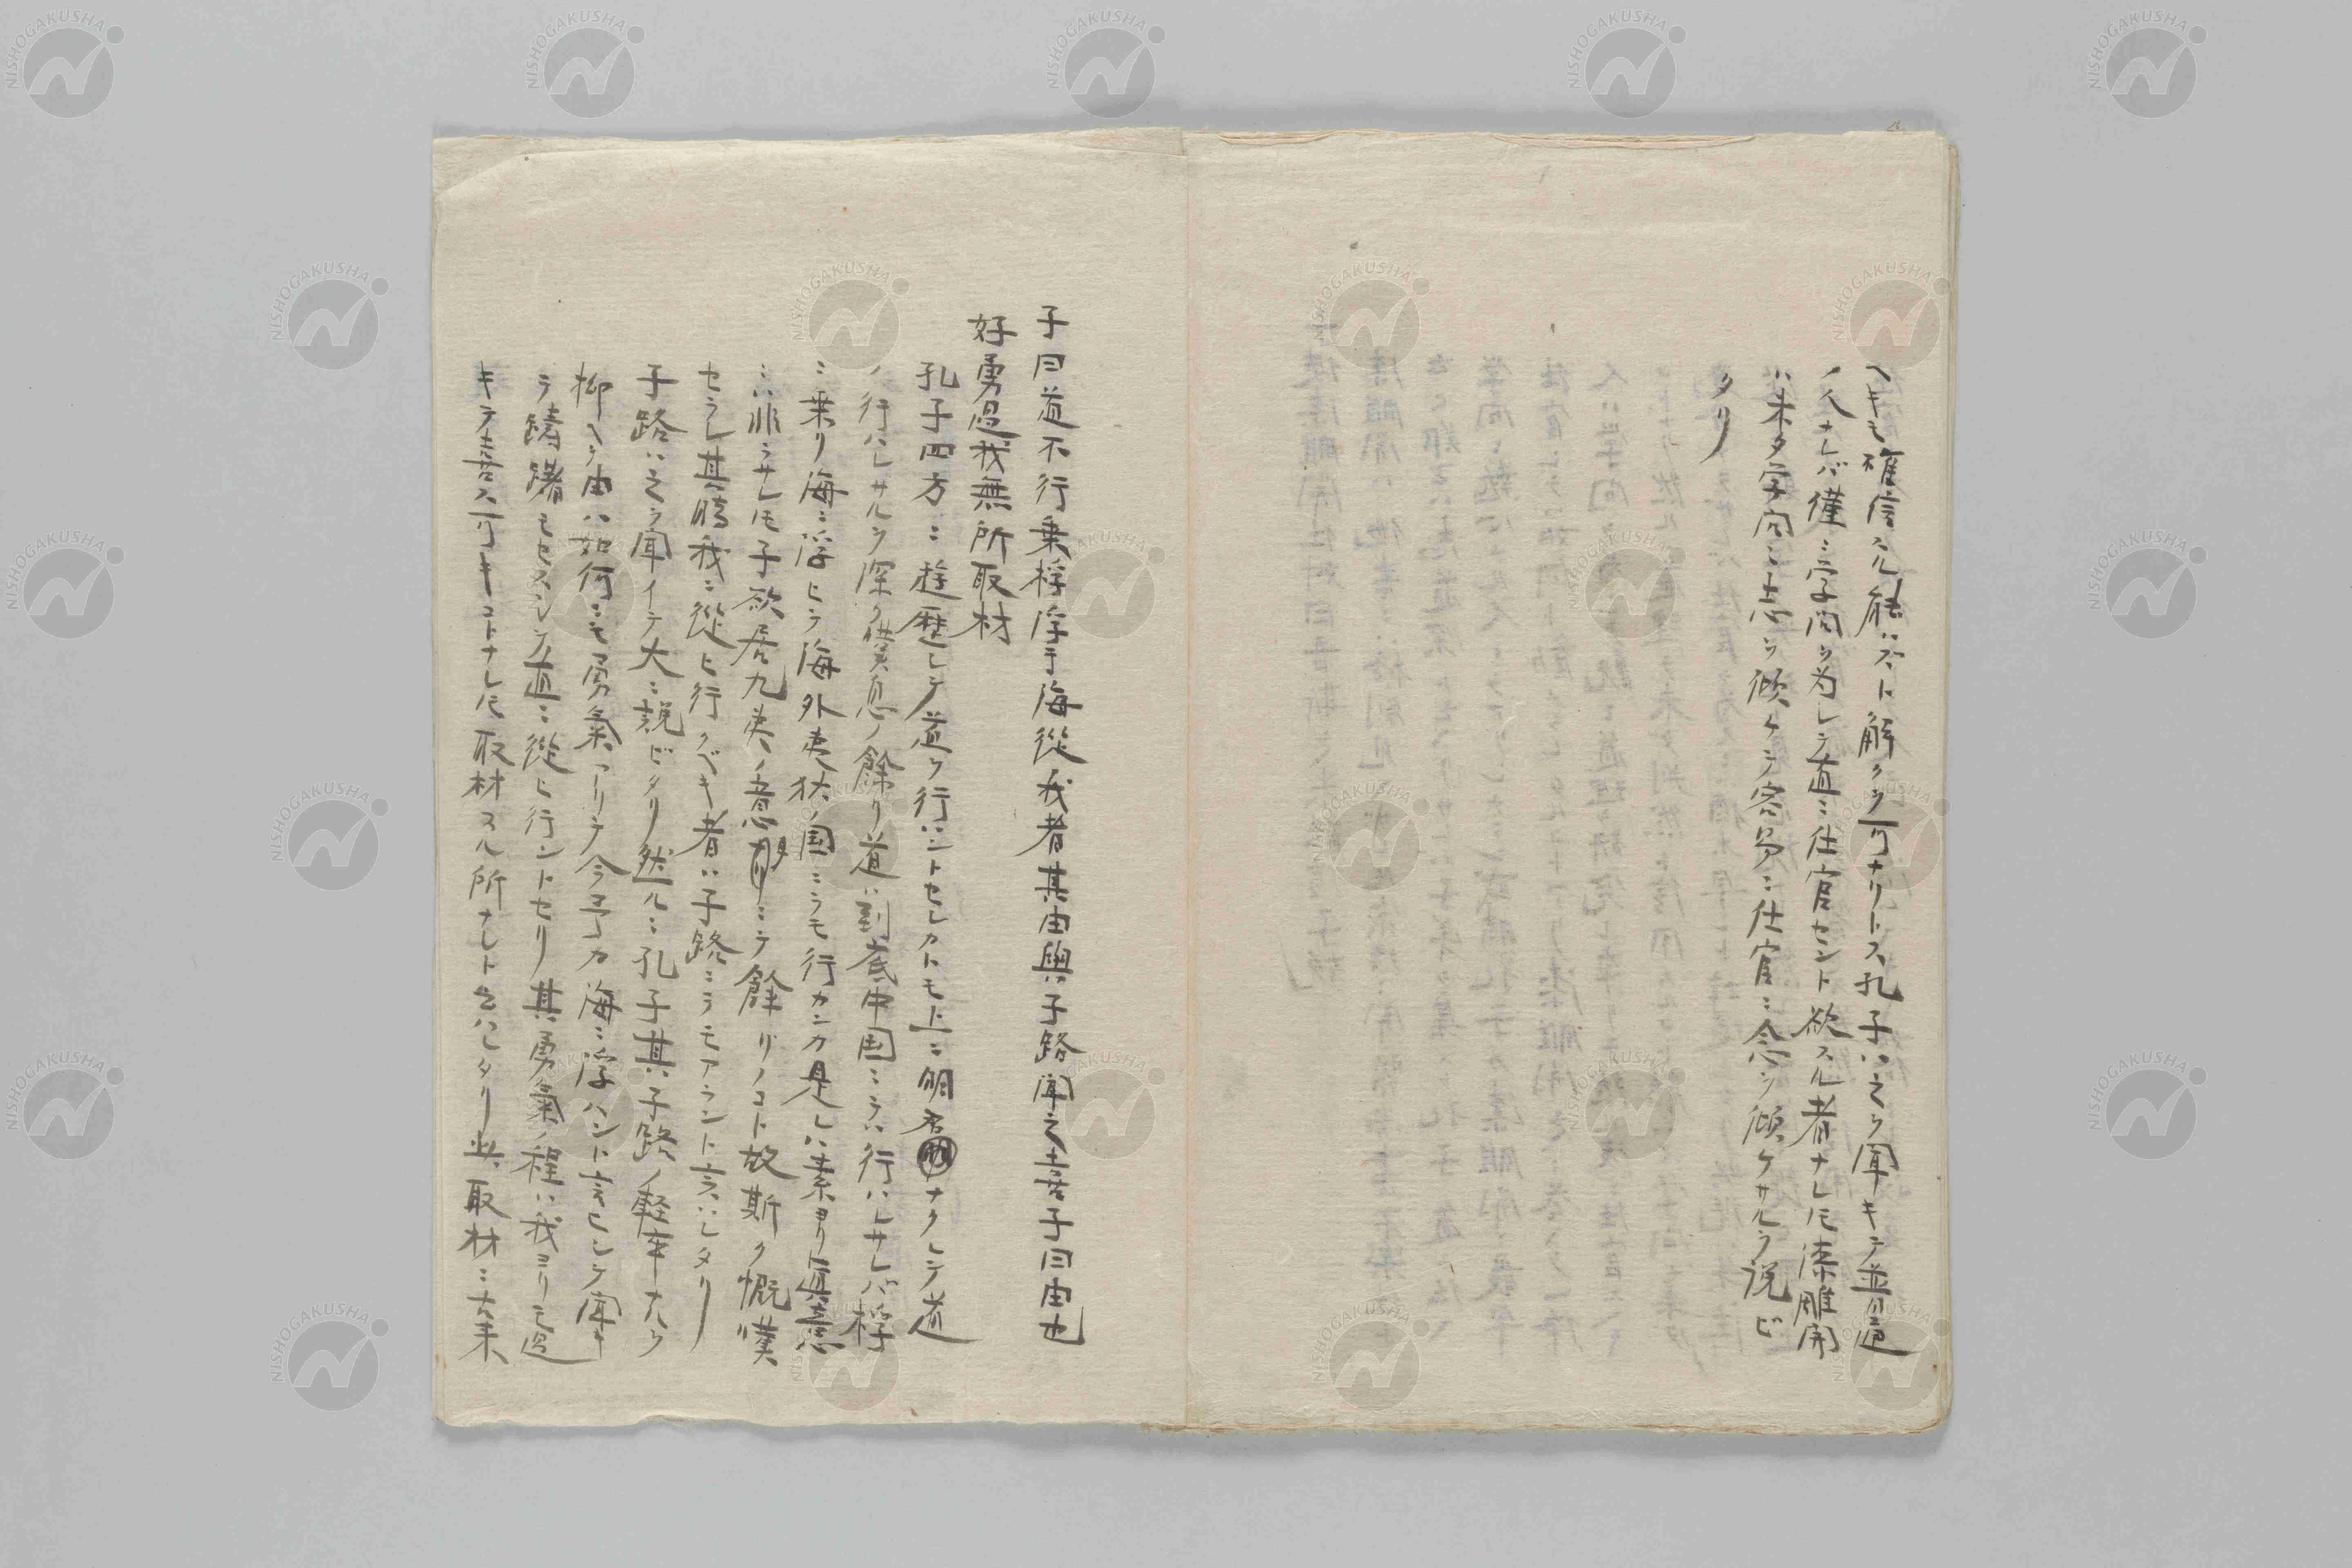 ヘキモ確信スル能ハズト解クヲ可ナリトス孔子ハ之ヲ聞キテ並通
ノ人ナレバ僅ニ学問ヲ為シテ直ニ仕官セント欲スル者ナレ𪜈漆雕開
ハ未タ学問ニ志ヲ傾ケテ容易ニ仕官ニ念ヲ傾ケサルヲ説ビ
タリ
子曰道不行乗桴浮于海從我者其由與子路聞之喜子曰由也
好勇過我無所取材
孔子四方ニ遊歴シテ道ヲ行ハントセシカトモ上ニ明君ナクシテ道
ノ行ハレサルヲ深ク慨息ノ餘リ道ハ到底中国ニテハ行ハレサレバ桴
ニ乗リ海ニ浮ヒテ海外夷狄ノ国ニテモ行カンカ是レハ素ヨリ眞意
ニハ非ラサレ𪜈子欲居九夷ノ意ニテ餘リノコト故斯ク慨嘆
セラレ其時我ニ從ヒ行クベキ者ハ子路ニテモアラント言ハレタリ
子路ハ之ヲ聞イテ大ニ説ビタリ然ルニ孔子其子路ノ軽率ナルヲ
抑ヘテ由ハ如何ニモ勇氣アリテ今予カ海ニ浮ハント言ヒシヲ聞キ
テ躊躇モセスシテ直ニ從ヒ行ントセリ其勇氣ノ程ハ我ヨリモ過
キテ喜フ可キコトナレ𪜈取材スル所ナシト云ハレタリ此取材ニ古来
NISHOGAKUSHA